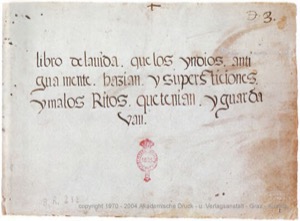 3.
libro de la vida. que los yndios. anti
gua mente. hazian. y supersticiones
y malos Ritos. que tenian. y guarda
van.
copyright 1970 - 2004 Akademische Druck - u. Verlagsanstalt - Graz - Austria